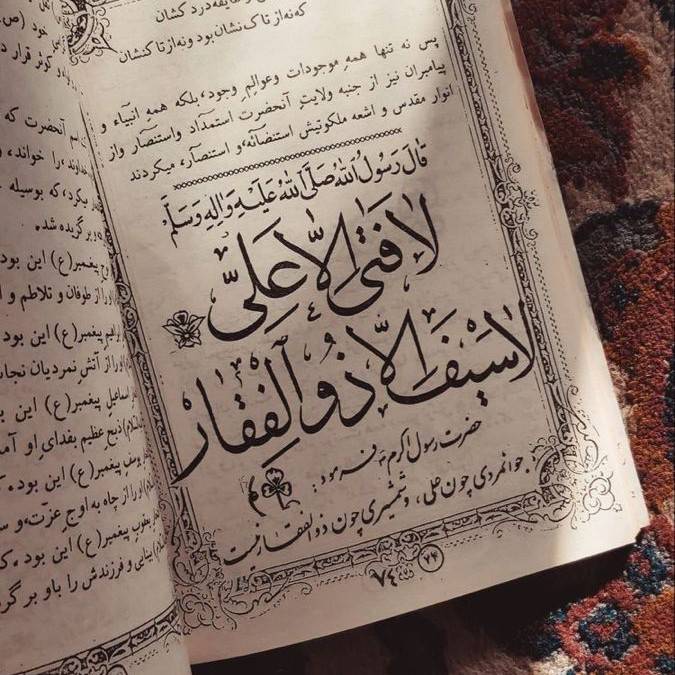 که نه از تاک نشان بود و نه از تاکنشان
پس نه تنها همه موجودات و عوالم وجود، بلکه همه انبیاء و
پیامبران نیز از جنبه ولایت آنحضرت استمداد واستنصار واز
انوار مقدس و اشعه ملکوتیش استضائه و استنصار، میکردند
قال رسول الله صلی الله علیه واله وسلم
لا فتی الا علی
لا سیف الا ذو الفقار
حضرت رسول اکرم فرمود:
جوانمردی چون علی، و شمشیری چون ذوالفقار نیست
۷۴
خود (ص
و کوثر قرار د
اسم آنحضرت که
را خواند،
میکرد، که بوسیله
و برگزیده شده
پیغمبر(ع) این بود
را از طوفان و تلاطم و ا
پیغمبر(ع) این بود
را از آتش نمردیان نجات
اسماعیل پیغمبر(ع) این ب
ذبح عظیم بفدای او آمد
یوسف پیغمبر(ع) این بود.
او را از چاه به اوج عزت و س
یعقوب پیغمبر(ع) این بود.
بینائی و فرزندش را باو بر گر